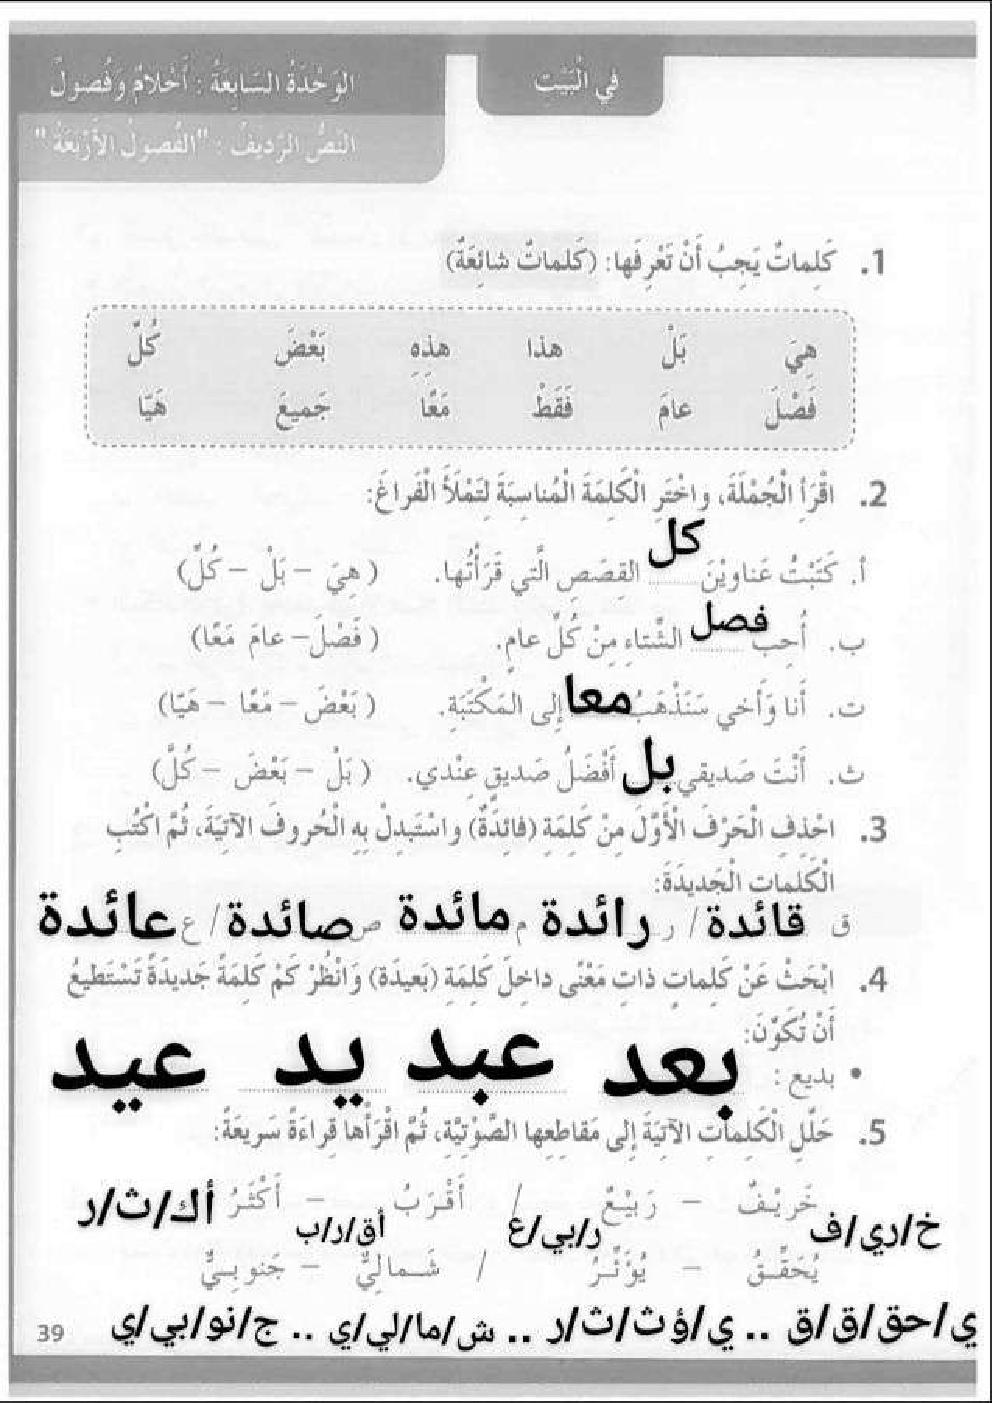 في الْبَيْتِ
الوَحْدَةُ السّابِعَةُ : أَحْلامٌ وَفُصولٌ
النَّصُّ الرَّديفُ : "الفُصولُ الأَرْبَعَةُ"
1. كَلِماتٌ يَجِبُ أَنْ تَعْرِفَها: (كَلِماتٌ شائِعَةٌ)
هِيَ بَلْ هذا هذِهِ بَعْضَ كُلَّ
فَصْلَ عامَ فَقَطْ مَعًا جَميعَ هَيّا
2. اقْرَأِ الْجُمْلَةَ، واخْتَرِ الْكَلِمَةَ الْمُناسِبَةَ لِتَمْلَأَ الْفَراغَ:
أ. كَتَبْتُ عَناوِيْنَ كل القِصَصِ الَّتي قَرَأْتُها. (هِيَ – بَلْ – كُلِّ)
ب. أُحِبُّ فصل الشِّتاءِ مِنْ كُلِّ عامٍ. (فَصْلَ – عامَ مَعًا)
ت. أَنا وَأَخي سَنَذْهَبُ معا إِلى المَكْتَبَةِ. (بَعْضَ – مَعًا – هَيّا)
ث. أَنْتَ صَديقي بل أَفْضَلُ صَديقٍ عِنْدي. (بَلْ – بَعْضَ – كُلَّ)
3. احْذِفِ الْحَرْفَ الْأَوَّلَ مِنْ كَلِمَةِ (فائِدَةٌ) واسْتَبدِلْ بِهِ الْحُروفَ الآتِيَةَ، ثُمَّ اكْتُبِ
الْكَلِماتِ الْجَديدَةَ:
ق قائدة / ر رائدة م مائدة ص صائدة / ع عائدة
4. ابْحَثْ عَنْ كَلِماتٍ ذاتِ مَعْنًى داخِلَ كَلِمَةِ (بَعيدَة) وَانْظُرْ كَمْ كَلِمَةً جَديدَةً تَسْتَطيعُ
أَنْ تُكَوِّنَ:
• بديع : بعد عبد يد عيد
5. حَلِّلِ الْكَلِماتِ الآتِيَةَ إِلى مَقاطِعِها الصَّوْتِيَّةِ، ثُمَّ اقْرَأْها قِراءَةً سَريعَةً:
خَرِيْفٌ – رَبِيْعٌ / أَقْرَبُ – أَكْثَرُ أك/ث/ر
خ/ري/ف ر/بي/ع أق/ر/ب
يُحَقِّقُ – يُؤَثِّرُ / شَماليٌّ – جَنوبيٌّ
ي/حق/ق/ق .. ي/ؤث/ث/ر .. ش/ما/لي/ي .. ج/نو/بي/ي
39